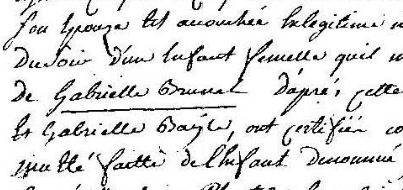 son epouse est accouchée en legitime m
du soir d'un Enfant femelle quil
de Gabrielle Brunel D'aprés cette
Et Gabrielle Bayle, ont certifié co
été faitte de l'enfant denommé